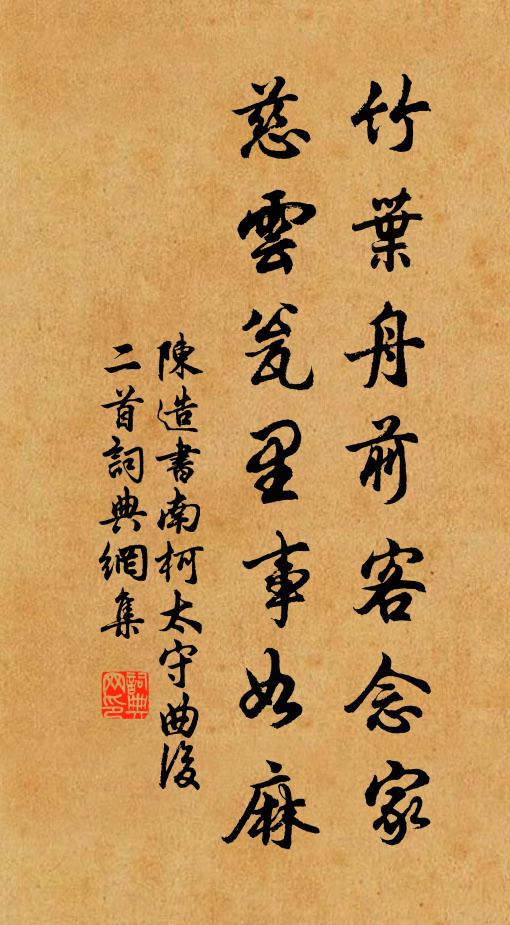 竹葉舟前客念家
慈雲瓮里事如麻
陳造書南柯太守曲後
二首詞典網集
詞典網印